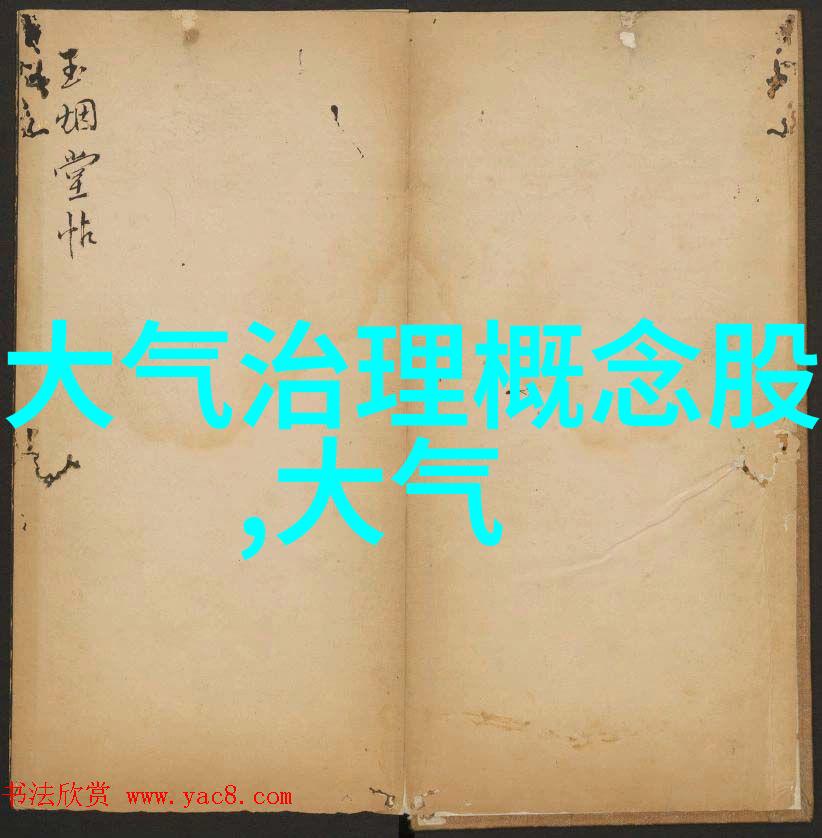 玉烟堂帖
大气治理概念股
,大气
书法欣赏 www.yac8.com